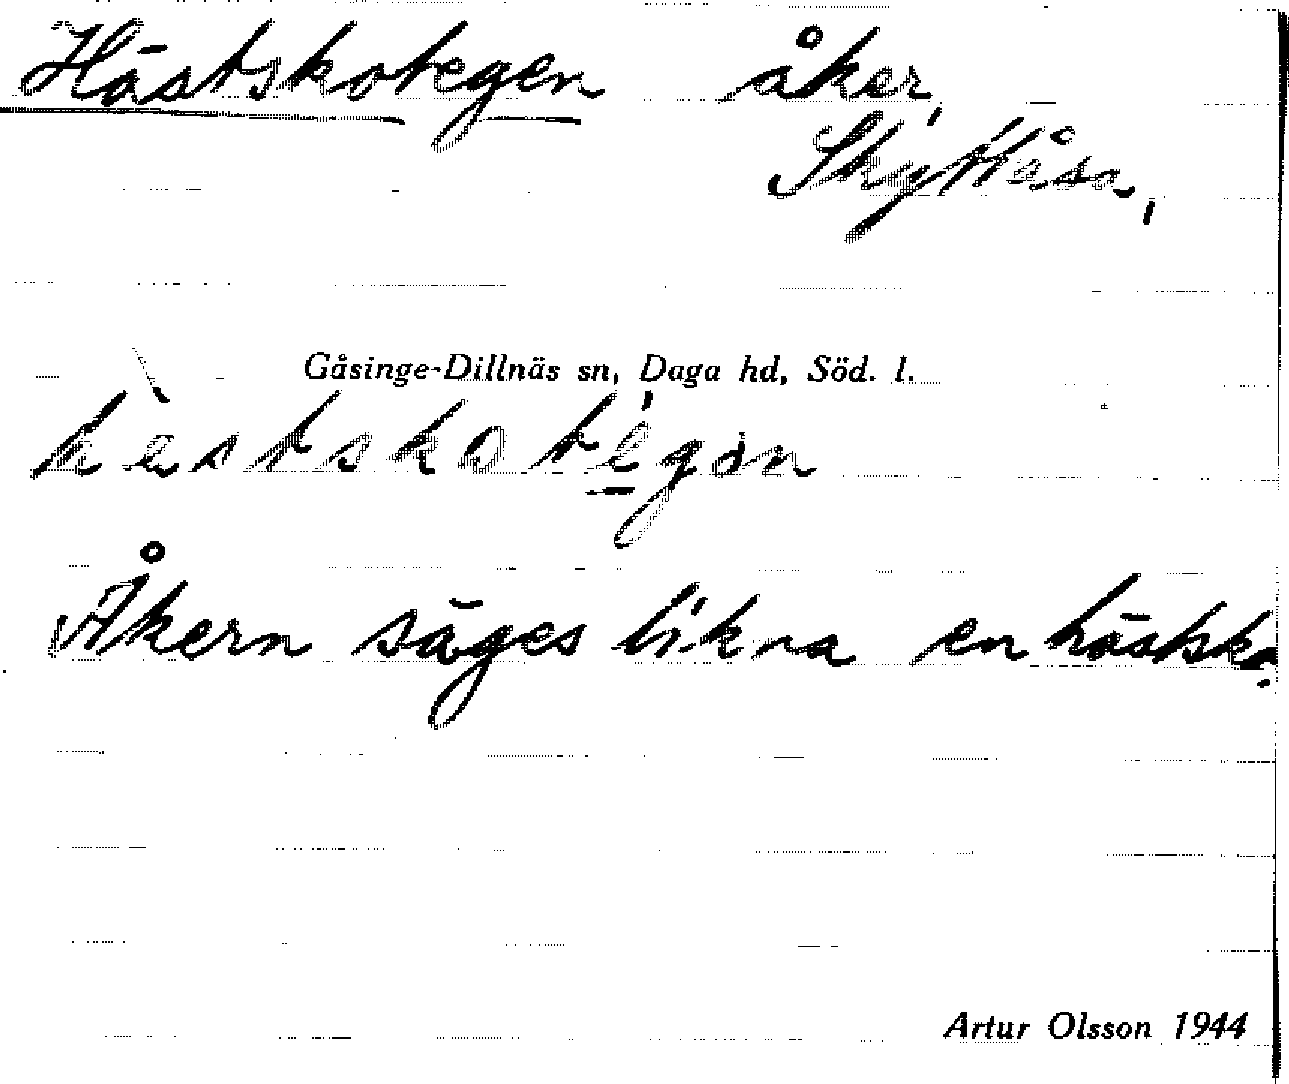 Hästskotegen åker,
Skyttåsa,
Gåsinge-Dillnäs sn, Daga hd, Söd. l.
hὲstskotégən
Åkern säges likna en hästsko.
Artur Olsson 1944